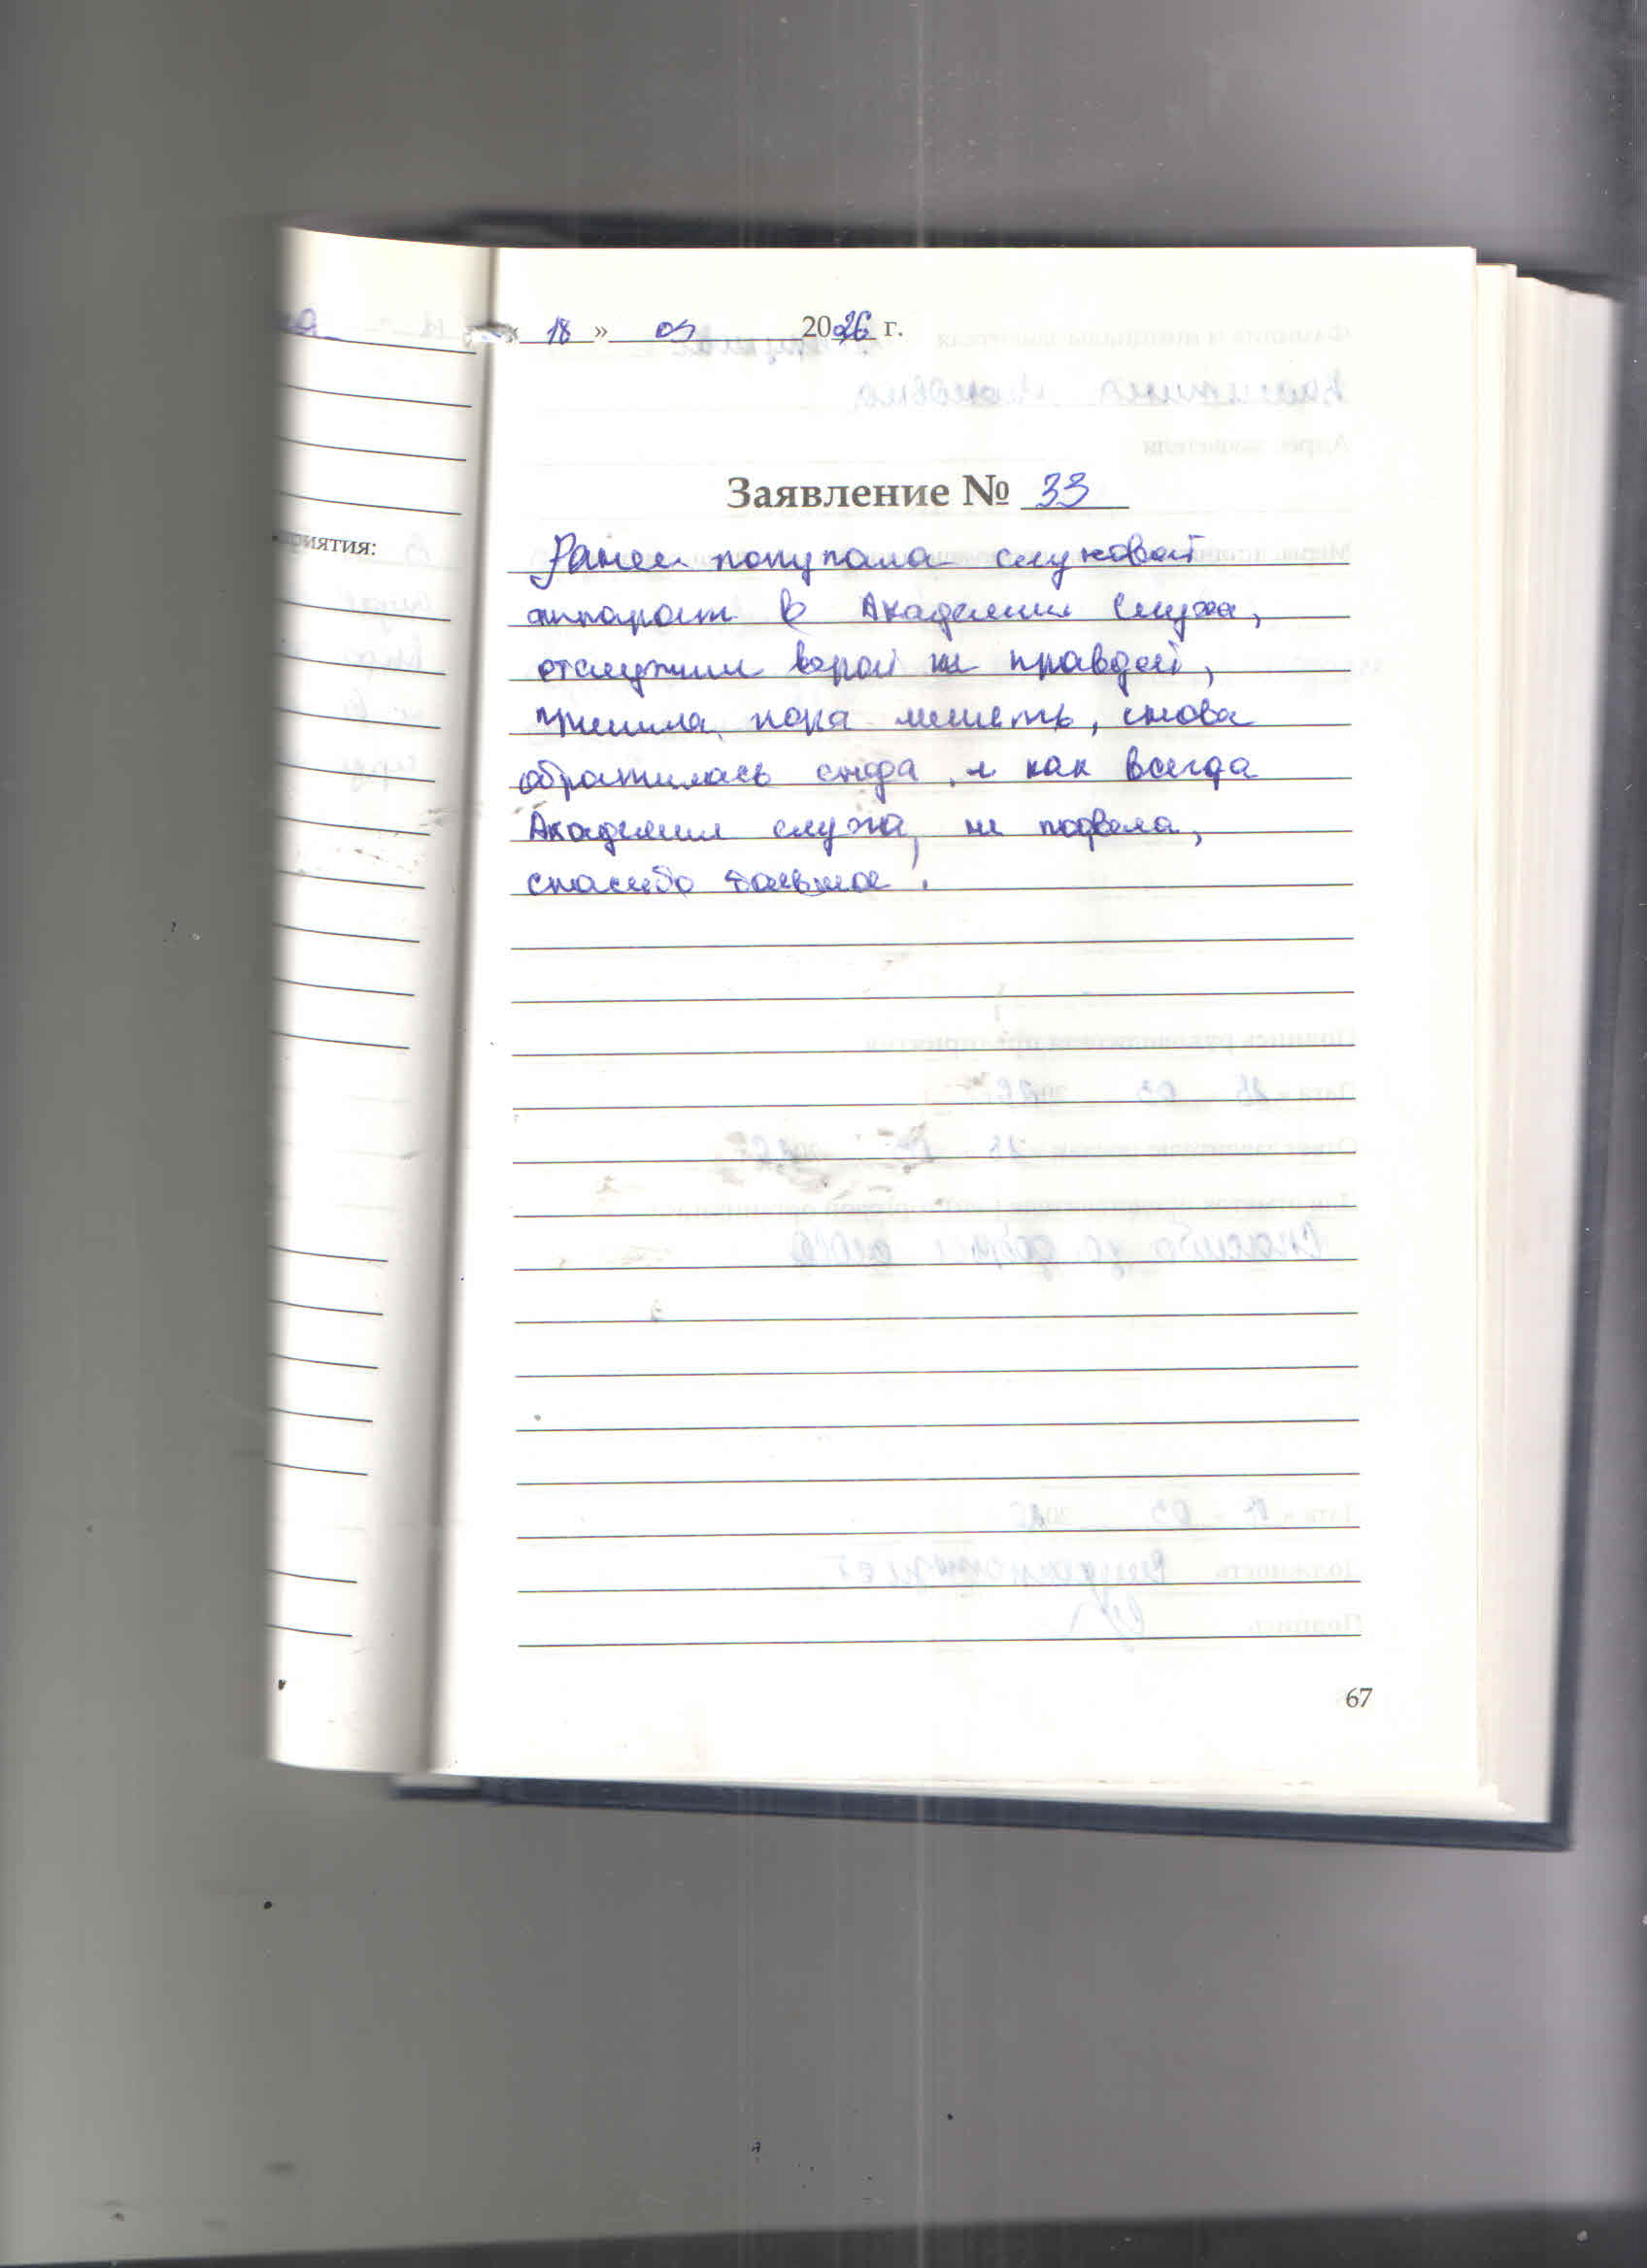 « 18 » 03 2026 г.
Заявление № 33
приятия:
Ранее покупала слуховой
аппарат в Академии Слуха,
отслужил верой и правдой,
решила, пора менять, снова
обратилась сюда, и как всегда
Академия слуха, не подвела,
спасибо большое!
67